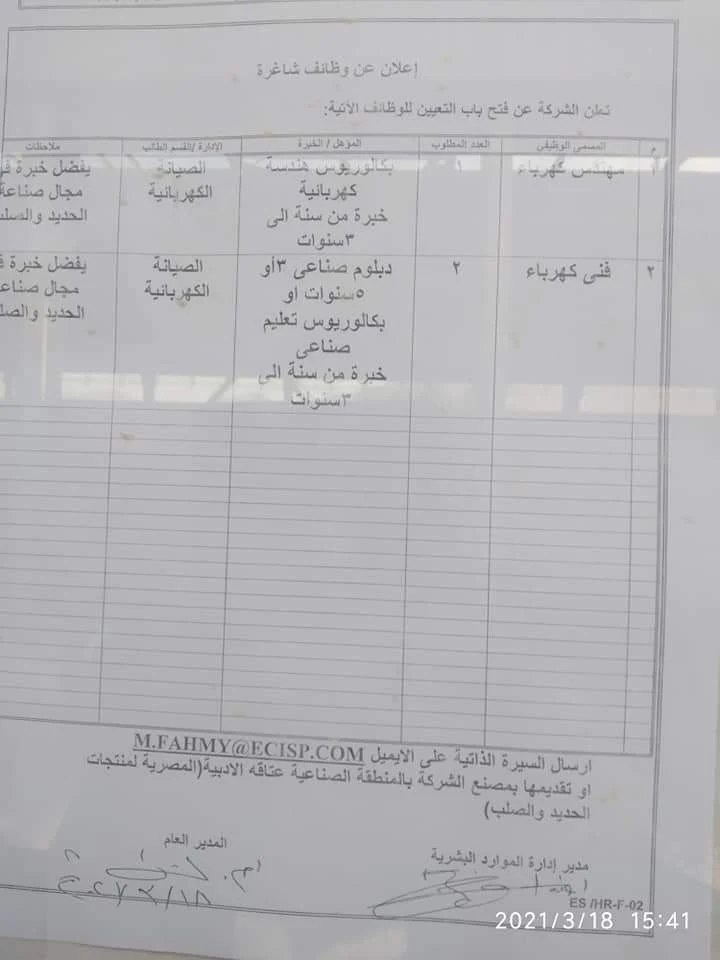 إعلان عن وظائف شاغرة
تعلن الشركة عن فتح باب التعيين للوظائف الآتية:
م المسمى الوظيفى العدد المطلوب المؤهل / الخبرة الإدارة /القسم الطالب ملاحظات
١ مهندس كهرباء ١ بكالوريوس هندسة الصيانة يفضل خبرة
كهربائية الكهربائية مجال صناعة
خبرة من سنة الى الحديد والصلب
٣سنوات
٢ فنى كهرباء ٢ دبلوم صناعى ٣أو الصيانة يفضل خبرة
٥سنوات او الكهربائية مجال
بكالوريوس تعليم الحديد
صناعى
خبرة من سنة الى
٣سنوات
ارسال السيرة الذاتية على الايميل M.FAHMY@ECISP.COM
او تقديمها بمصنع الشركة بالمنطقة الصناعية عتاقه الادبية(المصرية لمنتجات
الحديد والصلب)
مدير إدارة الموارد البشرية المدير العام
ES /HR-F-02
2021/3/18 15:41